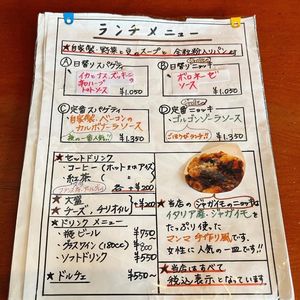 ランチメニュー
★自家製・野菜と豆のスープと全粒粉入りパン付
Ⓐ日替りスパゲティ
イカとナス、ズッキーニの
トマトソース
¥1,050
Ⓑ日替りニョッキ
ボロネーゼ
ソース
¥1,050
Ⓒ定番スパゲティ
自家製ベーコンの
カルボナーラソース
¥1,350
Ⓓ定番ニョッキ
ゴルゴンゾーラソース
¥1,350
★セットドリンク
・コーヒー(ホットまたはアイス)
・紅茶(
各 ¥200
★大盛
★チーズ、チリオイル
¥200
★ドリンクメニュー
・瓶ビール ¥750
・グラスワイン(180cc) ¥700
・ソフトドリンク ¥550~
★ドルチェ ¥550~
★当店の(ジャガイモの)ニョッキは
イタリア産・ジャガイモを
たっぷり使った
マンマ手作り風です。
女性に人気の一皿です!!
★当店はすべて
税込表示となっています。